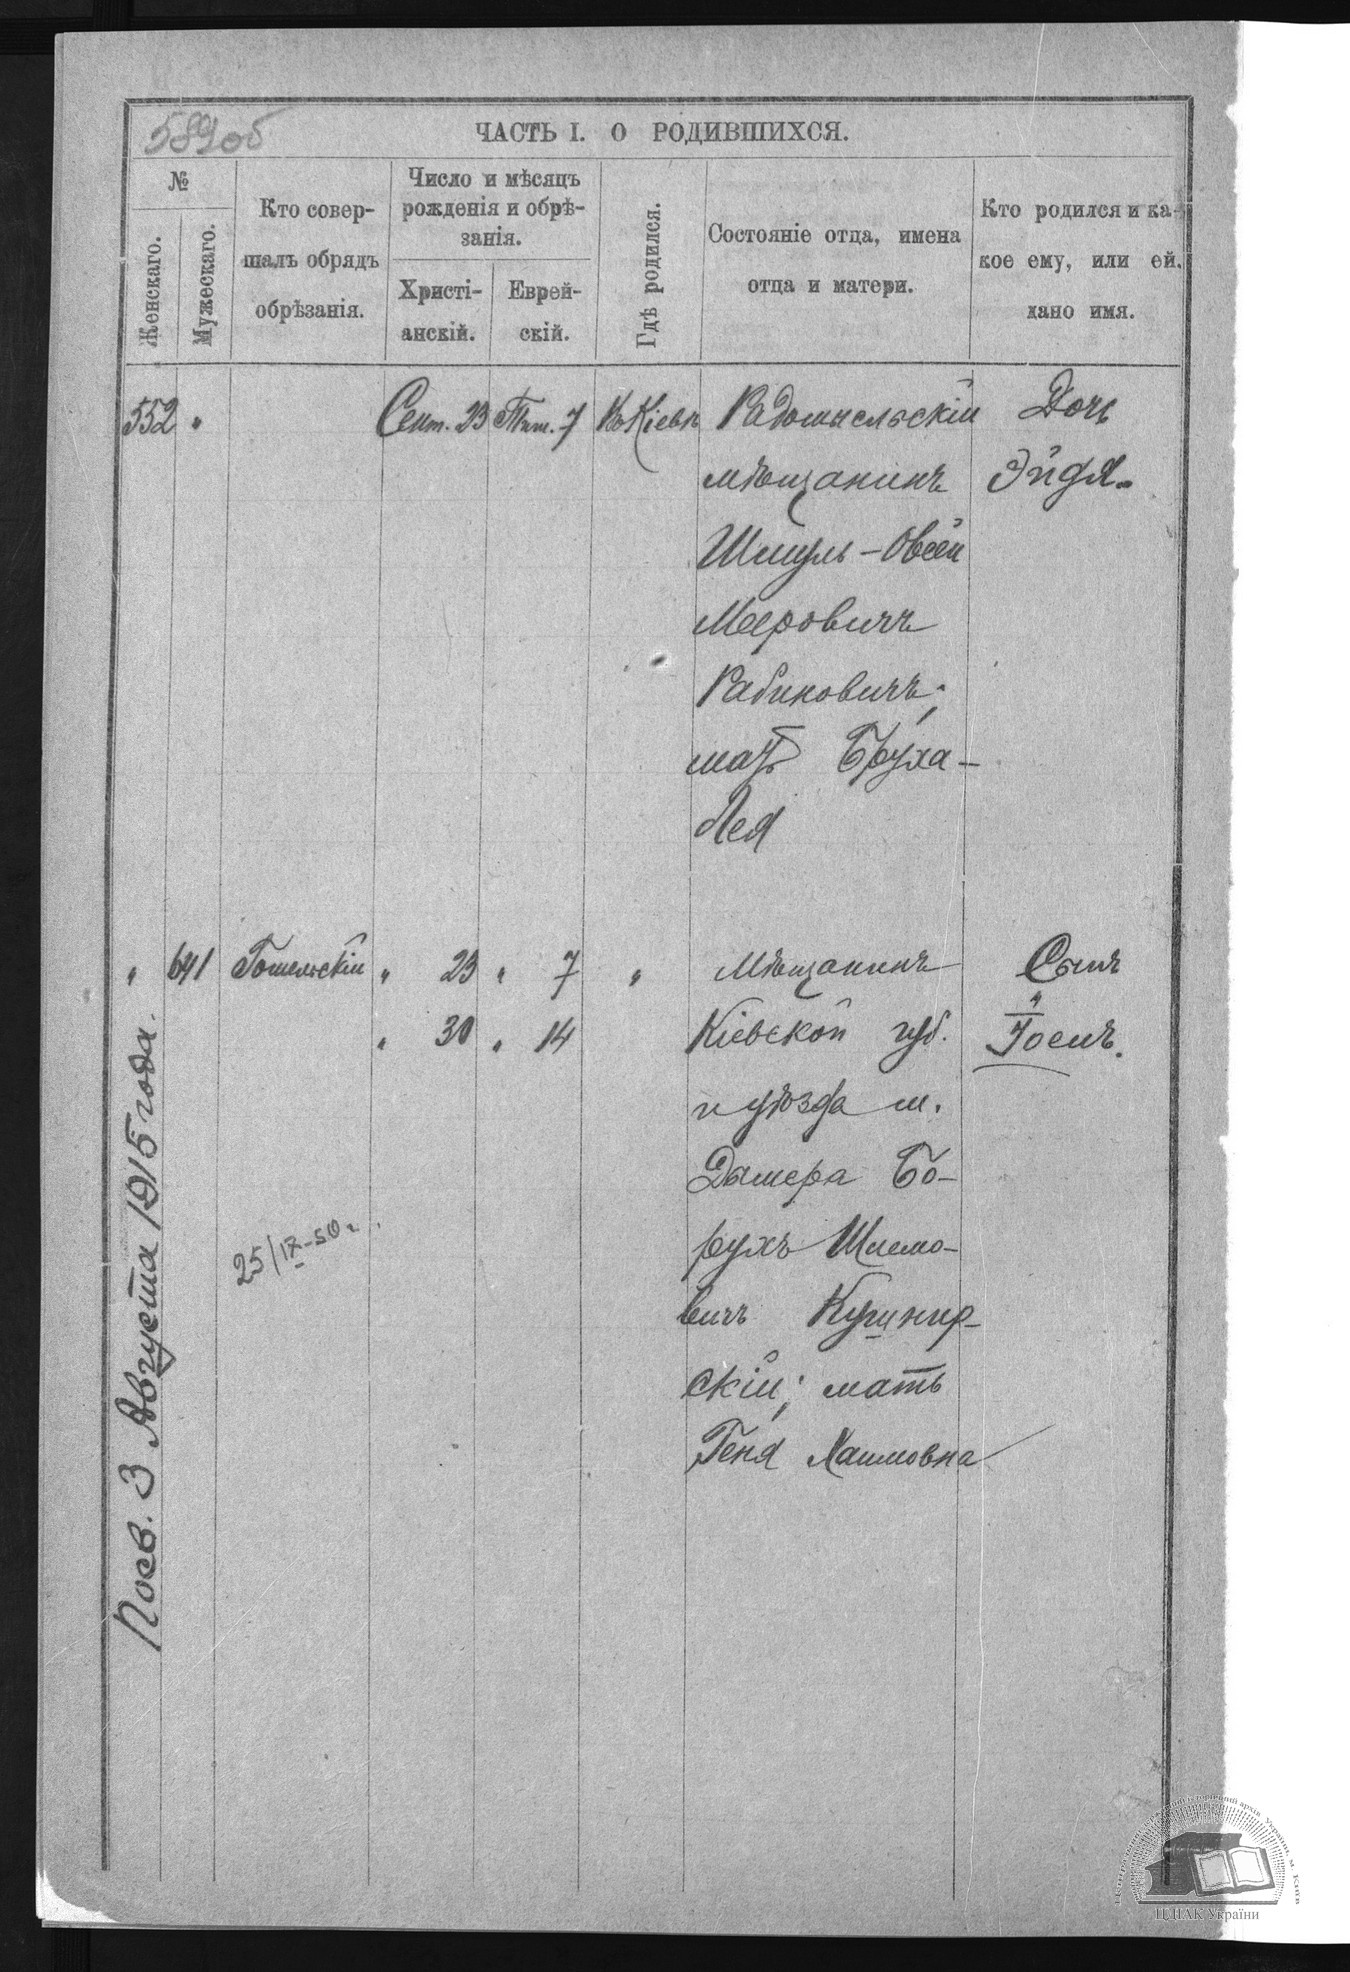 589об
ЧАСТЬ I. О РОДИВШИХСЯ.
№
Женскаго.
Мужескаго.
Кто совер-
шалъ обрядъ
обрѣзанія.
Число и мѣсяцъ
рожденія и обрѣ-
занія.
Христі-
анскій.
Еврей-
скій.
Гдѣ родился.
Состояніе отца, имена
отца и матери.
Кто родился и ка-
кое ему, или ей,
дано имя.
552 " Сент. 23 Тиш. 7 Въ Кіевѣ Радомысльскій Дочь
мѣщанинъ Эйдя.
Шмуль-Овсей
Мееровичъ
Рабиновичъ;
мать Бруха-
Лея
" 641 Гомельскій " 23 " 7 " Мѣщанинъ Сынъ
" 30 " 14 Кіевской губ. "Іосифъ".
и уѣзда м.
Дымера Бо-
рухъ Шлемо-
вичъ Кушнир-
скій; мать
Геня Хаимовна
25/IX-50г.
Посв. 3 Августа 1915 года.
ЦДІАК України